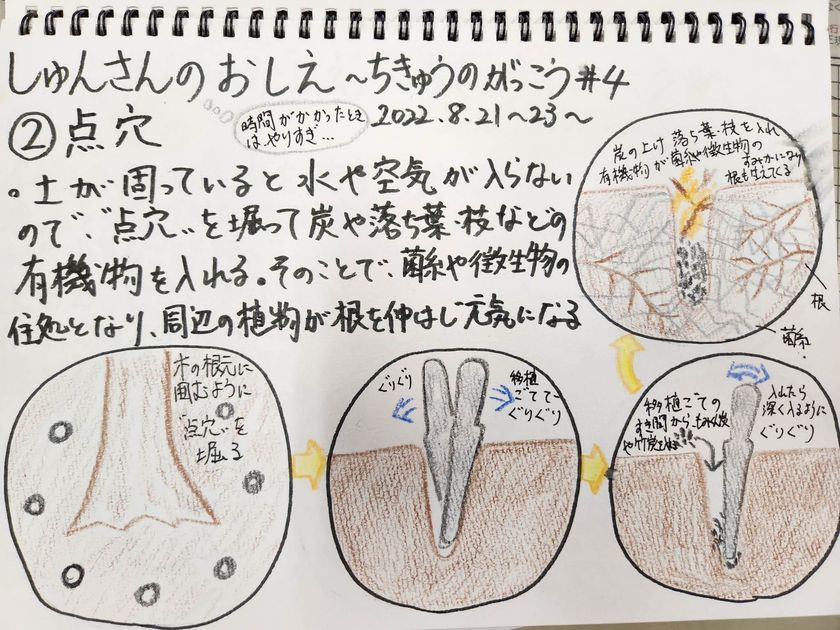 しゅんさんのおしえ〜ちきゅうのがっこう#4
2022.8.21〜23〜
時間がかかったとき
はやりすぎ…
②点穴
。土が固っていると水や空気が入らない
ので、"点穴"を掘って炭や落ち葉・枝などの
有機物を入れる。そのことで、菌糸や微生物の
住処となり、周辺の植物が根を伸ばし元気になる
炭の上に落ち葉・枝を入れ
有機物が菌糸や微生物の
すみかになり
根も生えてくる
根
菌糸
木の根元に
囲むように
"点穴"を
掘る
ぐりぐり
移植
ごてで
ぐりぐり
移植ごての
すき間から
や竹炭を
入れたら
深く入るように
ぐりぐり